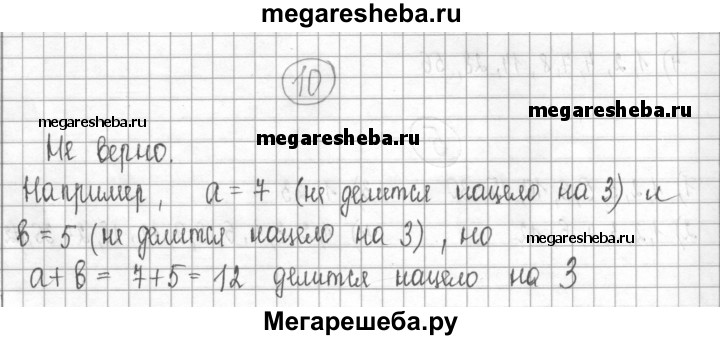 megaresheba.ru
10
megaresheba.ru
megaresheba.ru
megaresheba.ru
Не верно.
Например, a = 7 (не делится нацело на 3) и
в = 5 (не делится нацело на 3), но
megaresheba.ru
a + в = 7 + 5 = 12 делится нацело на 3
Мегарешеба.ру